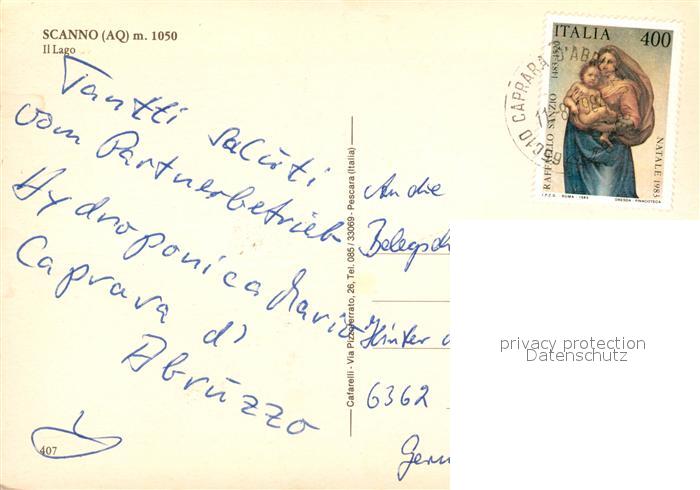 SCANNO (AQ) m. 1050
Il Lago
Tantti saluti
vom Partnerbetrieb
Hydroponica Mario
Caprara d'
Abruzzo
407
Cafarelli - Via Pizzoferrato, 26, Tel. 085 / 33069 - Pescara (Italia)
An die
Belegsch
Hinter
6362
Germ
ITALIA 400
1483-1520
RAFFAELLO SANZIO
NATALE 1983
I.P.Z.S. - ROMA - 1983
DRESDA - PINACOTECA
CAPRARA D'ABR
privacy protection
Datenschutz